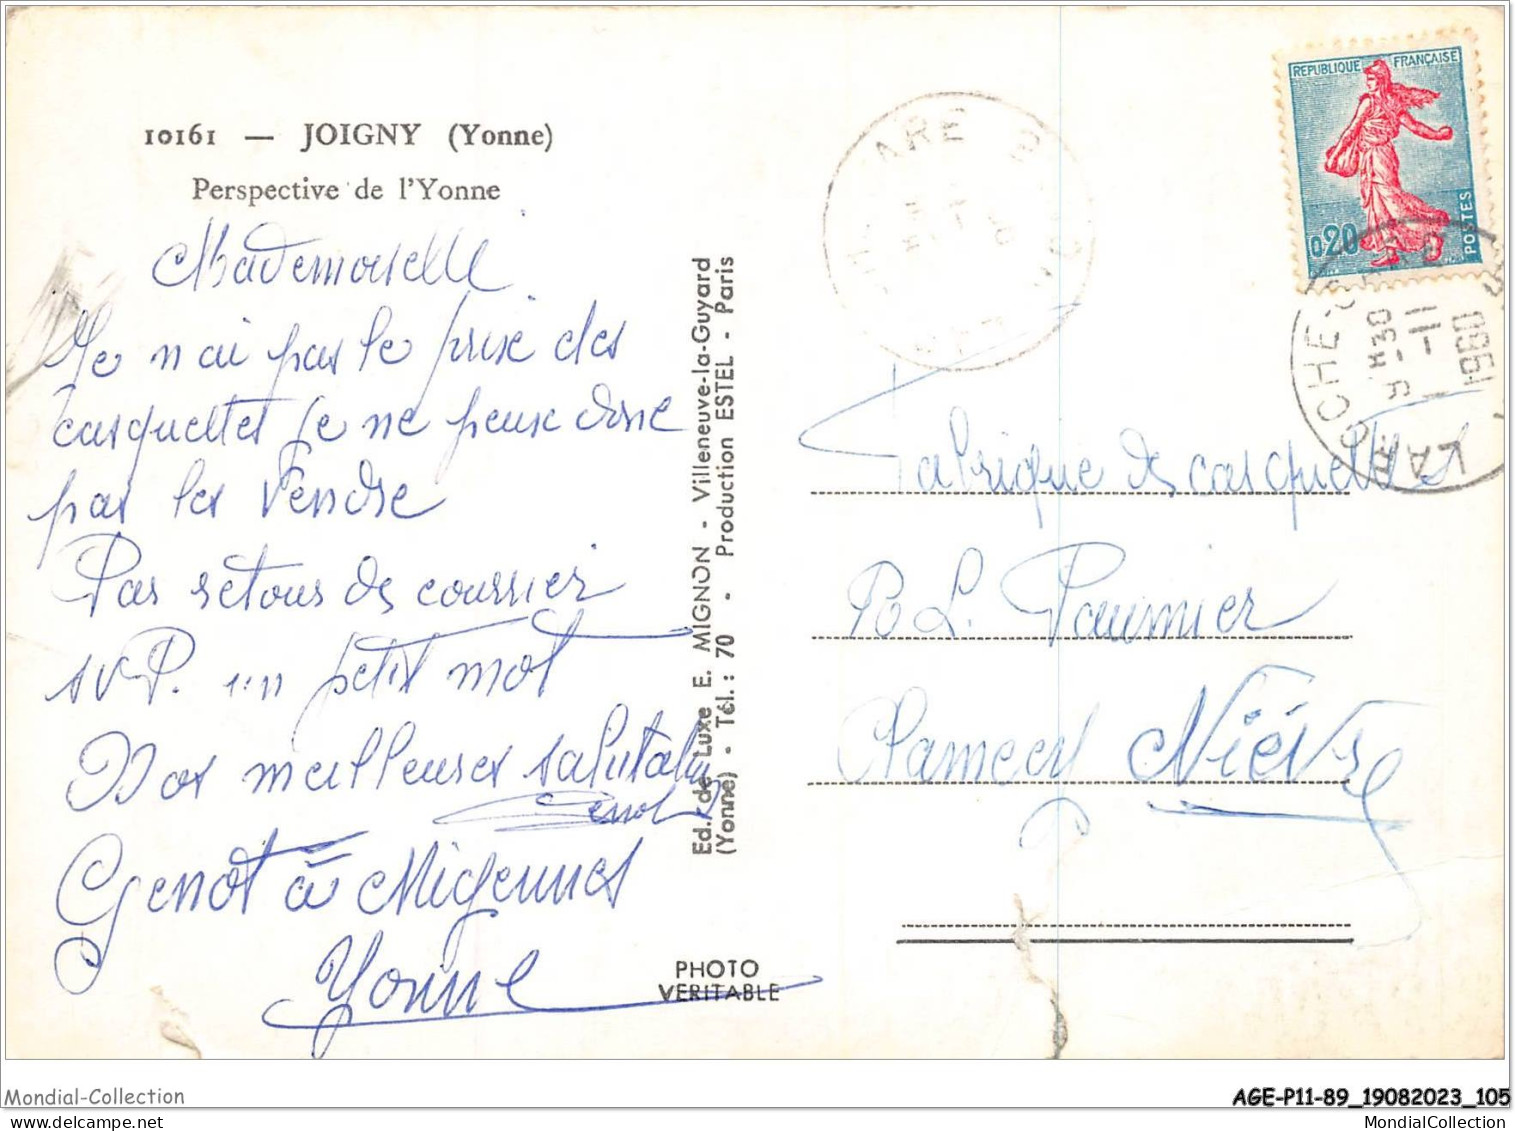 10161 — JOIGNY (Yonne)
Perspective de l'Yonne
Mademoiselle
Je n ai pas le prix des
casquettes je ne peux donc
pas les vendre
Par retour de courrier
S V P. un petit mot
Nos meilleures salutations
Genot
Genot à Migennes
Yonne
Ed. de Luxe E. MIGNON - Villeneuve-la-Guyard
(Yonne) - Tél. : 70 - Production ESTEL - Paris
PHOTO
VERITABLE
REPUBLIQUE FRANÇAISE
0,20
POSTES
LAROCHE
9 H30
-11
1960
GARE
Fabrique de casquettes
P. L. Paumier
Clamecy Nièvre
Mondial-Collection
AGE-P11-89_19082023_105
MondialCollection